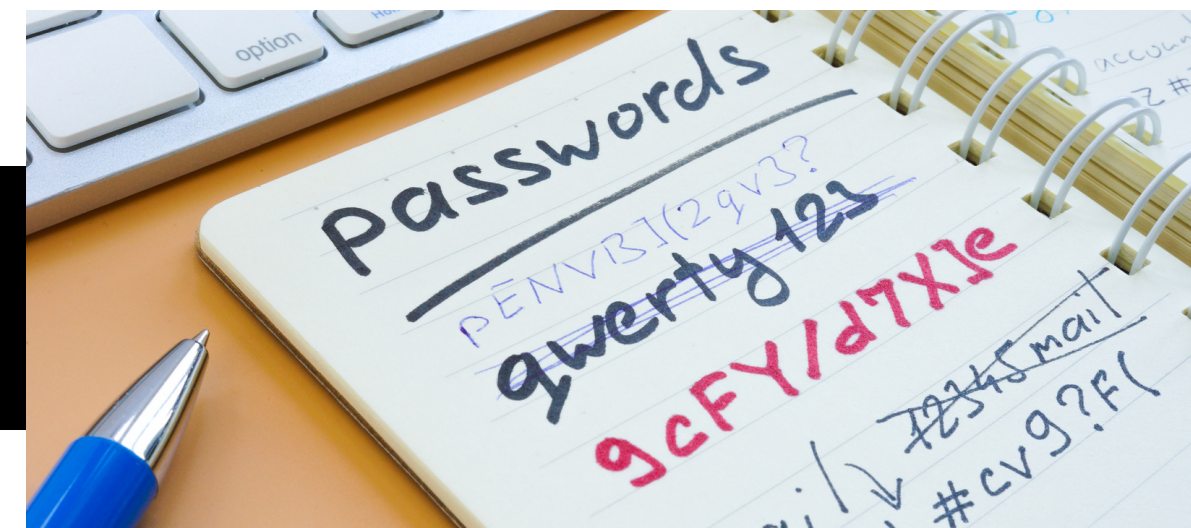 option
passwords
pENVB](2qv3?
qwerty 123
gcFY/d7X]e
12345 mail
#cv9?F(